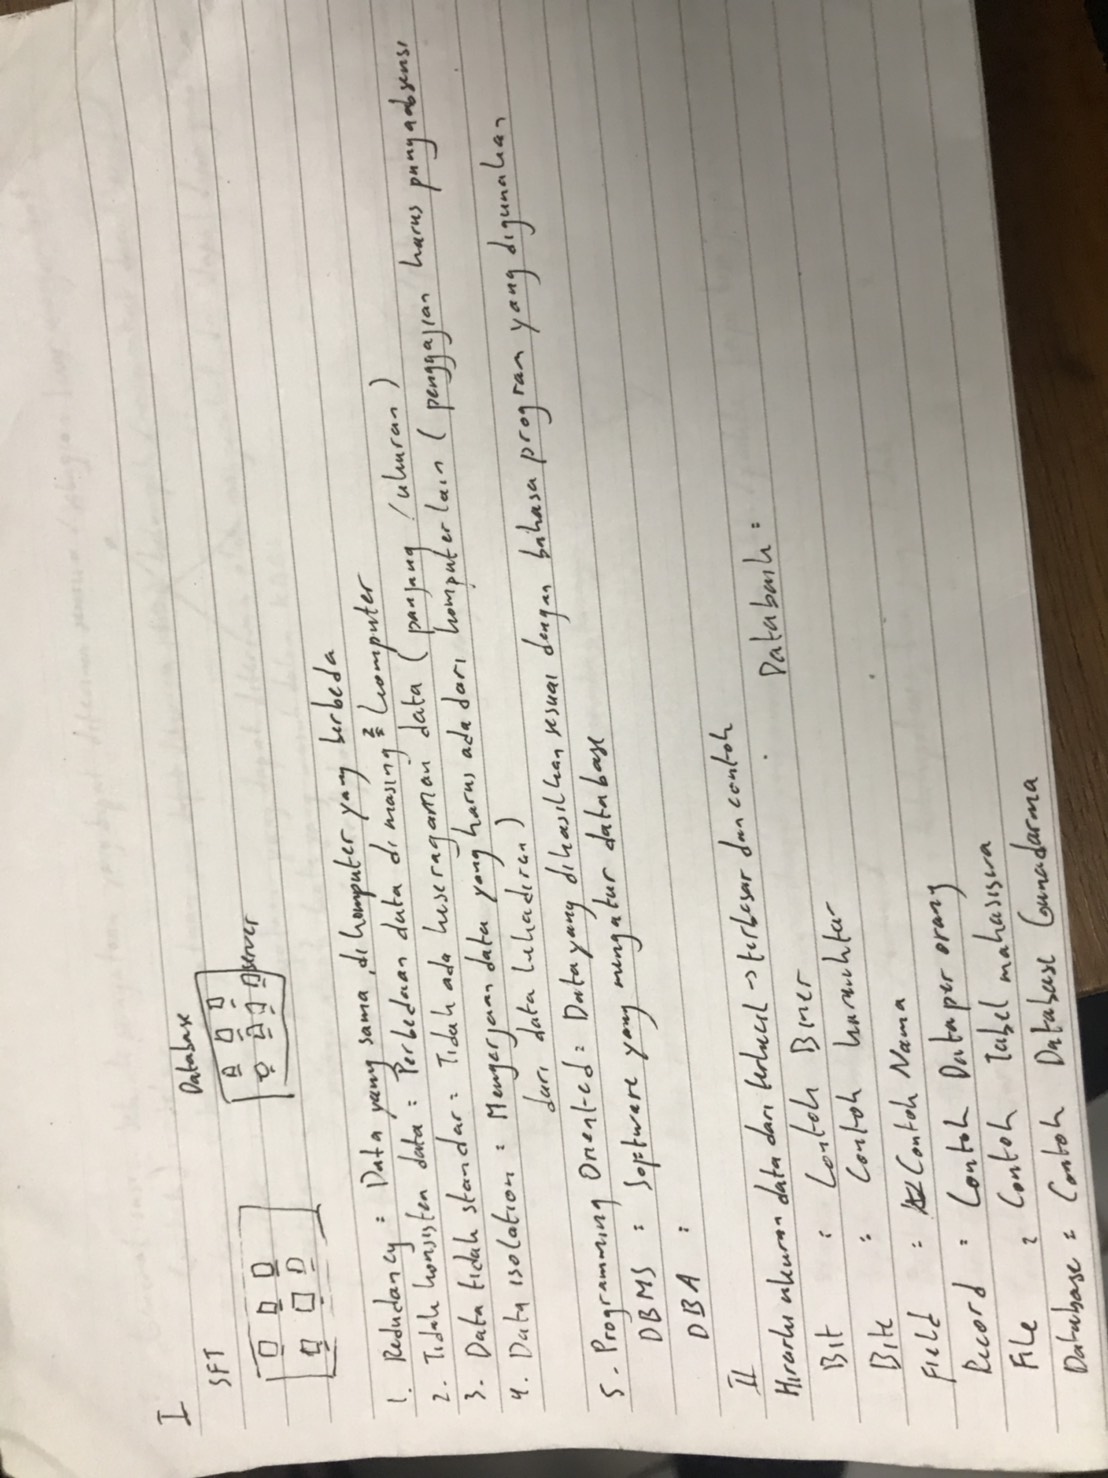 I
SFT
Database
server
1. Redudancy : Data yang sama, di komputer yang berbeda
2. Tidak konsisten data : Perbedaan data di masing 2 komputer
3. Data tidak standar : Tidak ada keseragaman data ( panjang / ukuran )
4. Data isolation : Mengerjaan data yang harus ada dari komputer lain ( penggajian harus punya absensi
dari data kehadiran )
5. Programming Oriented : Data yang dihasilkan sesuai dengan bahasa program yang digunakan
DBMS : Software yang mengatur database
DBA :
II
Hirarki ukuran data dari terkecil → terbesar dan contoh
Databank :
Bit : Contoh Biner
Bite : Contoh karakhter
Field : Contoh Nama
Record : Contoh Data per orang
File : Contoh Tabel mahasiswa
Database : Contoh Database Gunadarma